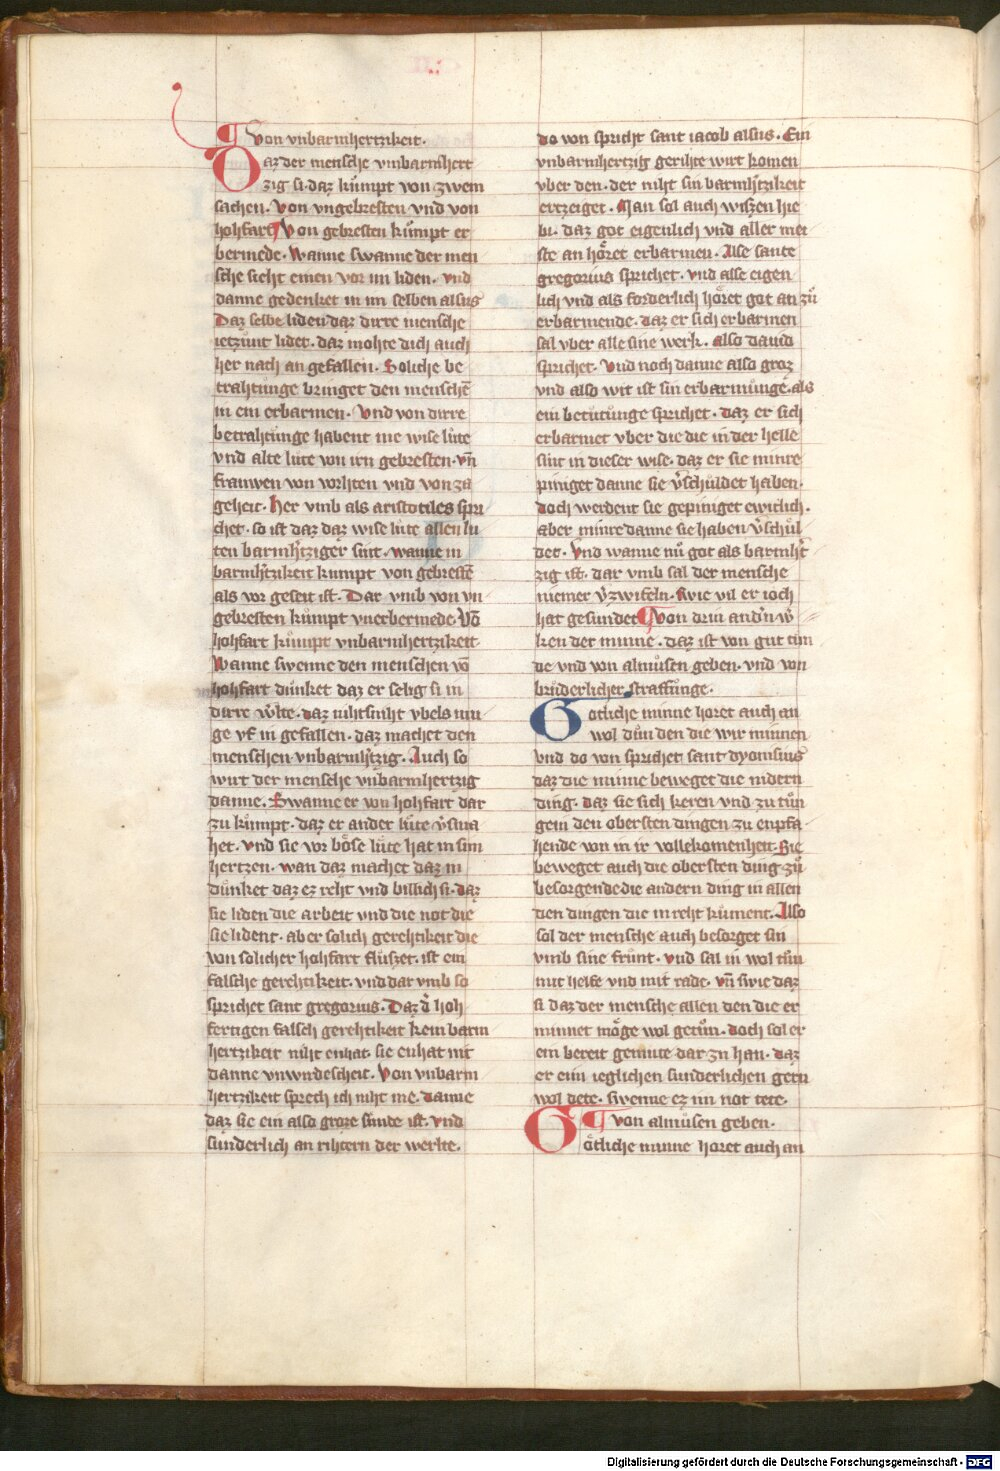 ¶ Von vnbarmhertzikeit.
Daz der mensche vnbarmhert
zig si. daz kümpt von zwem
sachen. von vngebresten vnd von
hohfart ¶ Von gebresten kümpt er
bermede. Wanne swanne der men
sche sieht einen vor im liden. vnd
danne gedenket in im selben alsus
Daz selbe liden daz dirre mensche
ietzünt lidet. daz mohte dich auch
her nach an gefallen. Soliche be
trahtünge bringet den menschē
in ein erbarmen. Vnd von dirre
betrahtünge habent me wise lüte
vnd alte lüte von irn gebresten. vn̄
frauwen von vorhten vnd von za
geheit. Her vmb als aristotiles spri
chet. so ist daz daz wise lüte allen lu
ten barmh̾tziger sint. wanne in
barmh̾tzikeit kumpt von gebrestē
als vor geseit ist. Dar vmb von vn
gebresten kümpt vnerbermede. Vō
hohfart kümpt vnbarmhertzikeit.
Wanne swenne den menschen vō
hohfart dünket daz er selig si in
dirre w̾lte. daz niht vbels mü
ge vf in gefallen. daz machet den
menschen vnbarmh̾tzig. Auch so
wirt der mensche vnbarmhertzig
danne. Swanne er von hohfart dar
zu kümpt. daz er ander lüte v̾sma
het. vnd sie vor böse lüte hat in sim
hertzen. wan daz machet daz in
dünket daz ez reht vnd billich si. daz
sie liden die arbeit vnd die not die
sie lident. aber solich gerehtikeit die
von solicher hohfart fluszet. ist ein
falsche gerehtikeit. vnd dar vmb so
sprichet sant gregorius. Daz d̾ hoh
fertigen falsch gerehtikeit kein barm
hertzikeit niht enhat. sie enhat nit
danne vnwirdescheit. Von vnbarm
hertzikeit sprech ich niht me. danne
daz sie ein also groze sünde ist. vnd
sünderlich an rihtern der werlte.
do von spricht sant iacob alsus. Ein
vnbarmhertzig gerihte wirt komen
vber den. der niht sin barmh̾tzikeit
erzeiget. Man sol auch wiszen hie
bi. daz got eigenlich vnd aller mei
ste an höret erbarmen. Alse sante
gregorius sprichet. vnd alse eigen
lich vnd als forderlich höret got an zů
erbarmende. daz er sich erbarmen
sal vber alle sine werk. also dauid
sprichet. Vnd noch danne also groz
vnd also wit ist sin erbarmünge. als
ein betütünge sprichet. daz er sich
erbarmet vber die die in der helle
sint in dieser wise. daz er sie minre
piniget danne sie v̾schüldet haben.
doch werdent sie gepiniget ewiclich.
aber minre danne sie haben v̾schül
det. Vnd wanne nů got als barmh̾
zig ist. dar vmb sal der mensche
niemer v̾zwifeln. Swie vil er ioch
hat gesundet ¶ Von drin and̾n w̾
ken der minne. daz ist von gut tün
de vnd von almüsen geben. vnd von
brüderlicher straffünge.
Götliche minne horet auch an
wol důn den die wir minnen
vnd do von sprichet sant dyonisius
daz die minne beweget die nidern
ding. daz sie sich keren vnd zu tůn
gein den obersten dingen zu enpfa
hende von in ir vollekomenheit. Sie
beweget auch die obersten ding zů
besorgende die andern ding in allen
den dingen die in reht küment. Also
sol der mensche auch besorget sin
vmb sine frünt. vnd sal in wol tůn
mit helfe vnd mit rade. vn̄ swie daz
si daz der mensche allen den die er
minnet möge wol getůn. doch sol er
ein bereit gemüte dar zu han. daz
er eim ieglichen sunderlichen gern
wol dete. swenne ez im not tete.
¶ Von almüsen geben.
Götliche minne horet auch an
Digitalisierung gefördert durch die Deutsche Forschungsgemeinschaft - DFG